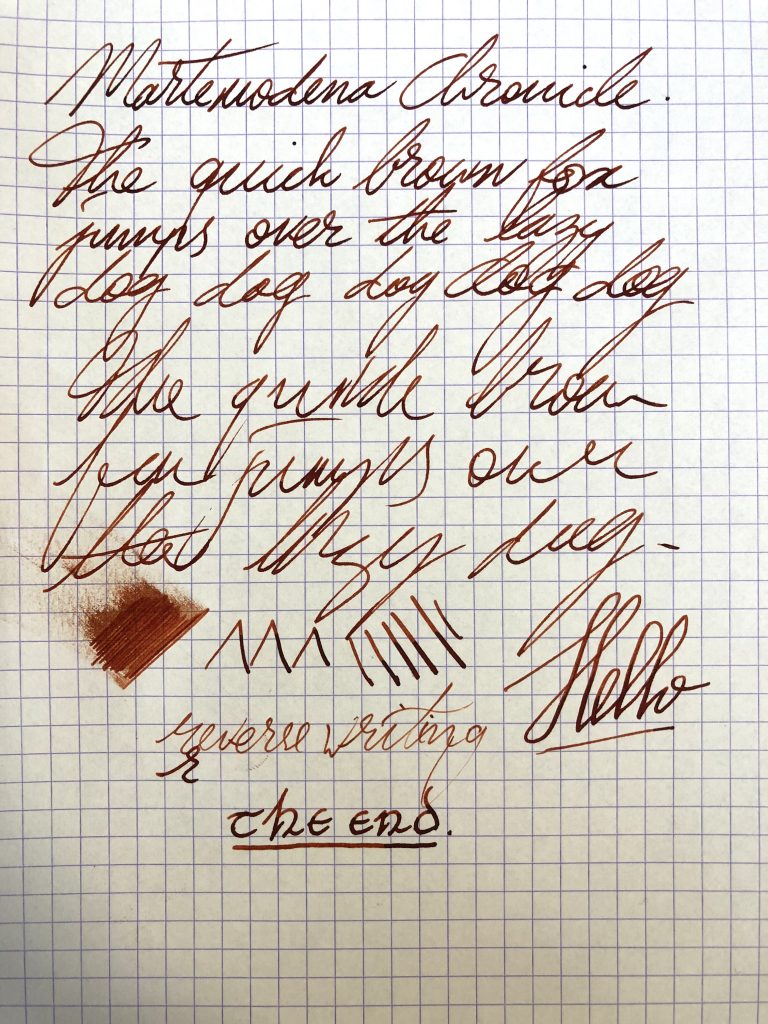 Martemodena Chronicle.
The quick brown fox
jumps over the lazy
dog dog dog dog dog
The quick brown
fox jumps over
the lazy dog.
Hello
reverse writing
r
the end.